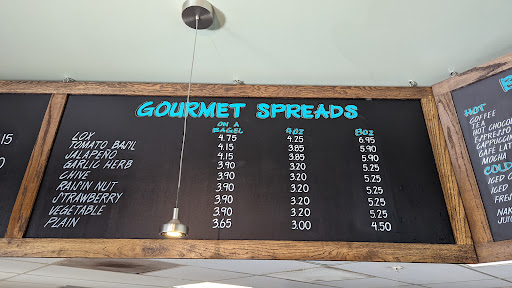 GOURMET SPREADS
ON A BAGEL 4OZ 8OZ
LOX 4.75 4.25 6.95
TOMATO BASIL 4.15 3.85 5.90
JALAPEÑO 4.15 3.85 5.90
GARLIC HERB 3.90 3.20 5.25
CHIVE 3.90 3.20 5.25
RAISIN NUT 3.90 3.20 5.25
STRAWBERRY 3.90 3.20 5.25
VEGETABLE 3.90 3.20 5.25
PLAIN 3.65 3.00 4.50
15
HOT
COFFEE
TEA
HOT CHOC
ESPRESSO
CAPPUCC
CAFE LAT
MOCHA
COLD
ICED C
ICED
NAK
JUIC